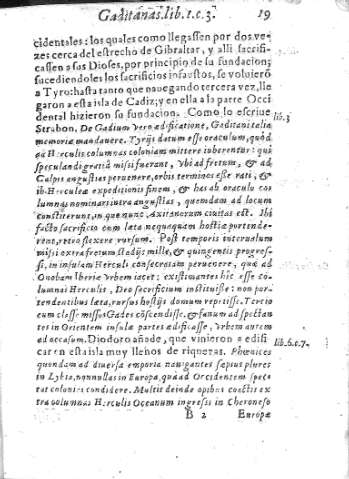 Gaditanas. lib. 1. c. 3. 19
cidentales: los quales como llegassen por dos ve-
zes cerca del estrecho de Gibraltar, y alli sacrifi-
cassen a sus Dioses, por principio de su fundacion;
sucediendoles los sacrificios infaustos, se voluierō
a Tyro: hasta tanto que nauegando tercera vez, lle
garon a esta isla de Cadiz; y en ella a la parte Occi
dental hizieron su fundacion. Como lo escriue
lib. 3
Strabon. De Gadium vero ædificatione, Gaditani talia
memoriæ mandauere. Tyrijs datum esse oraculum, quod
ad Herculis columnas coloniam mittere iuberentur: qui
speculandi gratia missi fuerant, vbi ad fretum, & ad
Calpis angustias peruenere, orbis terminos esse rati, &
ib Herculeæ expeditionis finem, & has ab oraculo co
lumnas nominari intra angustias, quemdam ad locum
constiterunt, in quo nunc Axitanorum ciuitas est. Ibi
facto sacrificio cum læta nequaquam hostiæ portende-
rent, retro flexere cursum. Post temporis interuallum
missi extra fretum stadijs mille, & quingentis progres-
si, in insulam Herculi consecratam peruenere, quæ ad
Onobam Iberiæ vrbem iacet: existimantes hic esse co
lumnas Herculis, Deo sacrificium instituisse: non por-
tendentibus læta, rursus hostijs domum repetisse. Tertio
cum classe missos Gades cōscendisse, & fanum ad spectan
tes in Orientem insulæ partes ædificasse, Vrbem autem
ad occasum. Diodoro añade, que vinieron a edifi
lib. 6. c. 7.
car en esta isla muy llenos de riquezas. Phœnices
quondam ad diuersa emporia nauigantes sæpius plures
in Lybia, nonnullas in Europa, quæ ad Occidentem spectā
tat colonias condidere. Multis deinde opibus coactis ex
tra columnas Herculis Oceanum ingressi in Cheroneso
B 2 Europæ